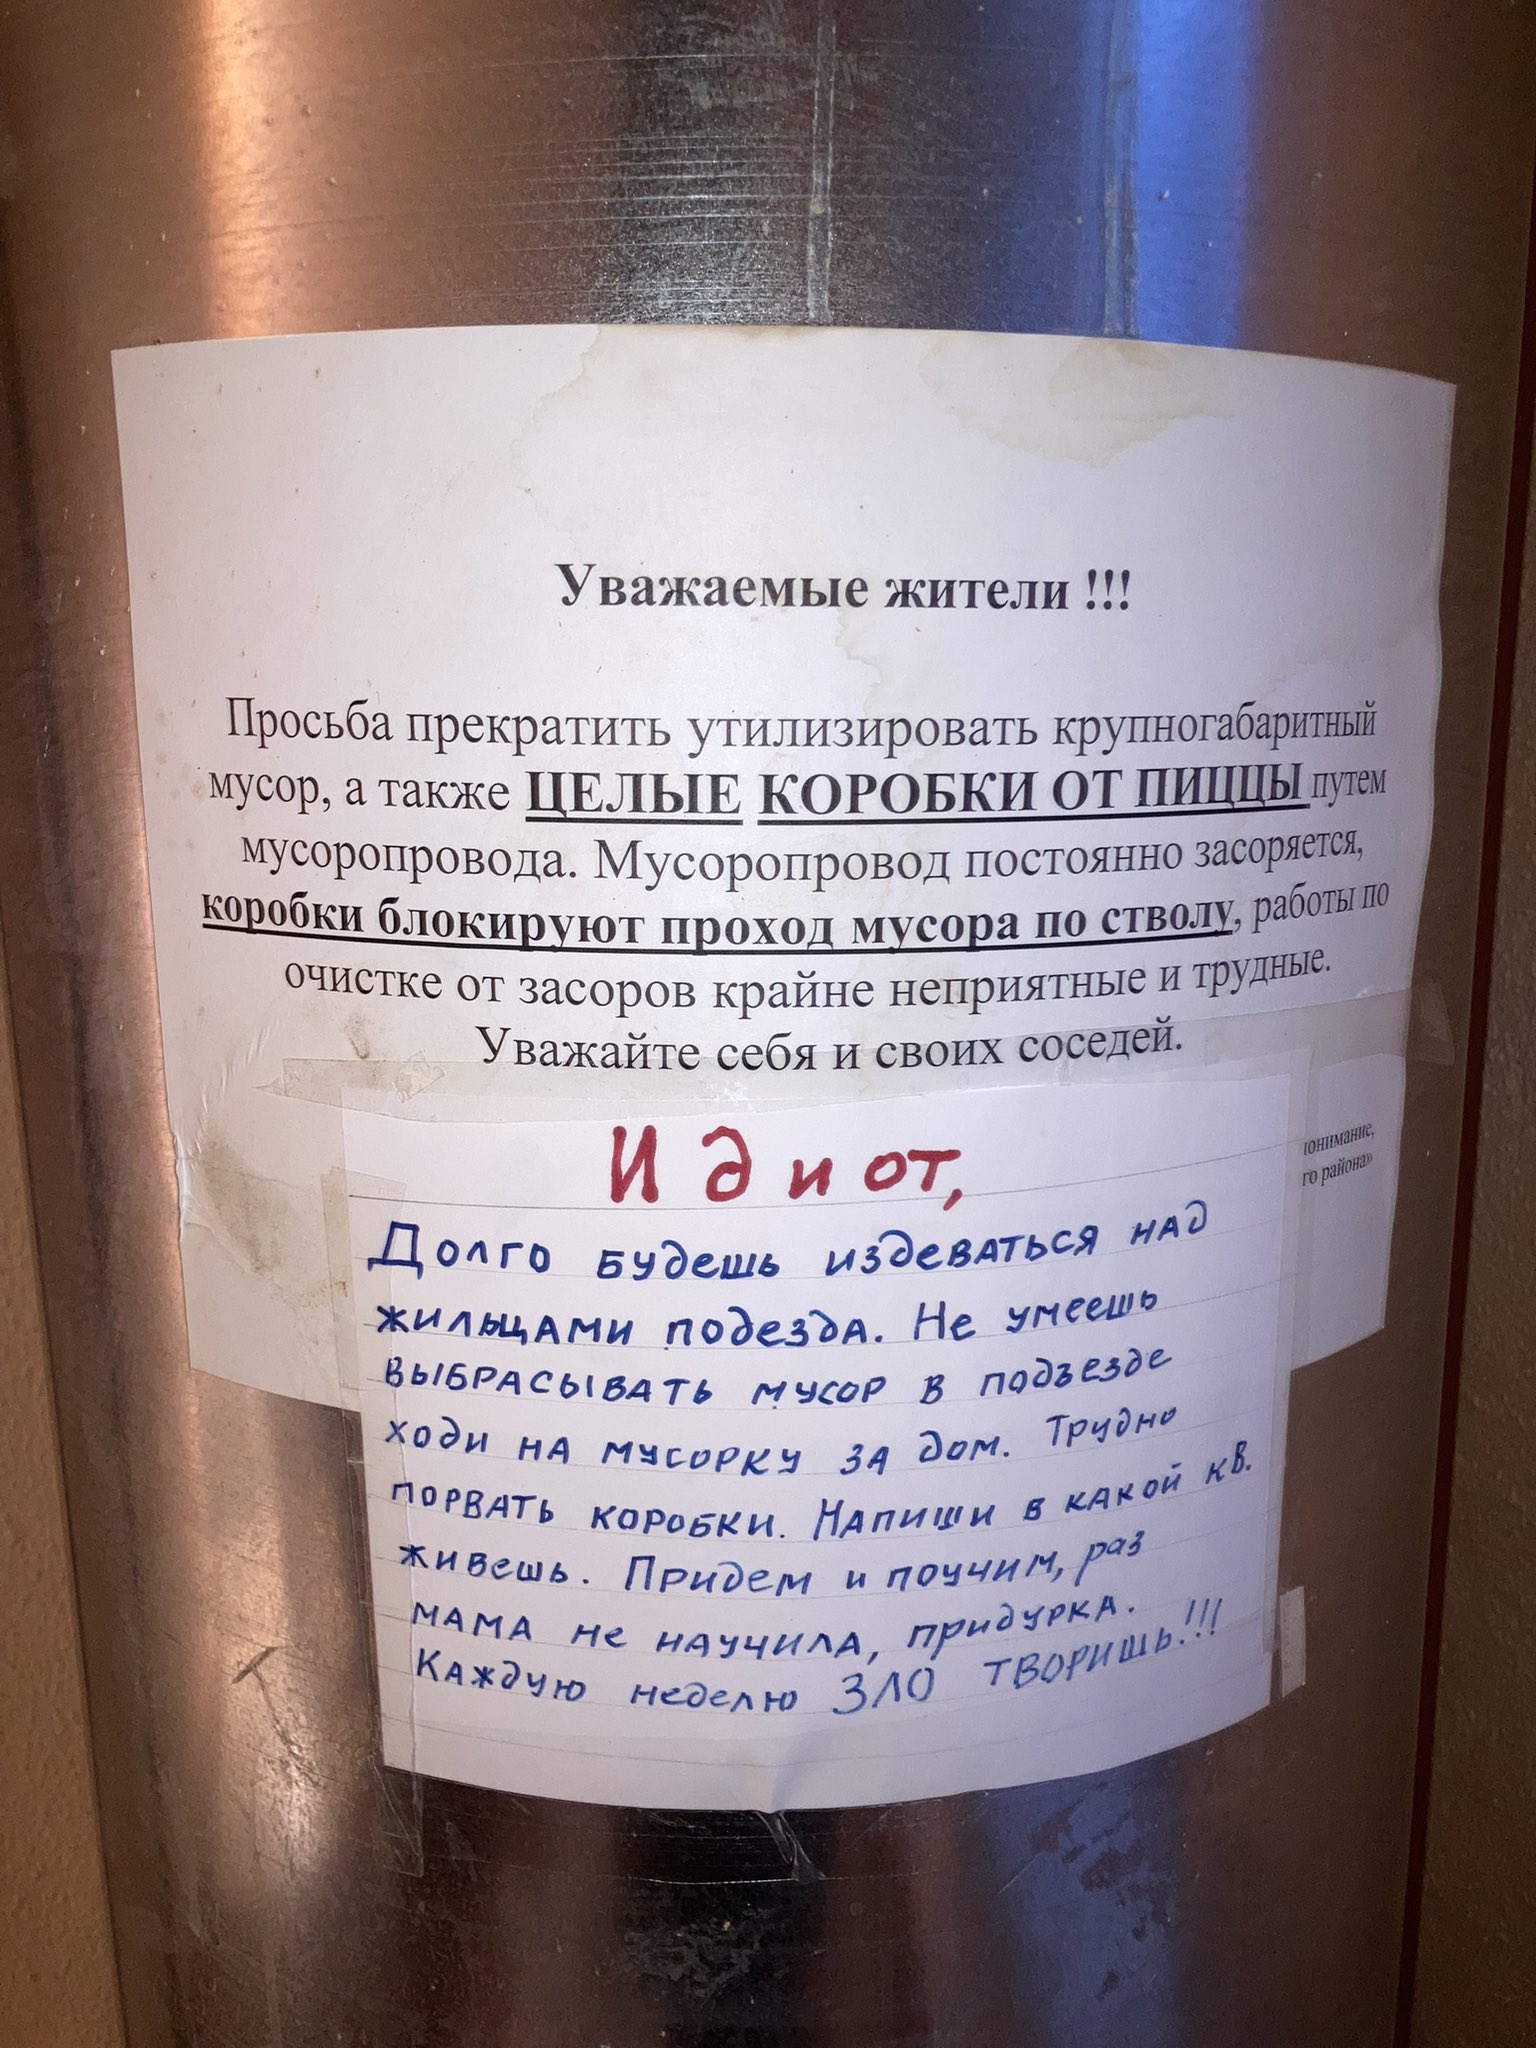 Уважаемые жители !!!
Просьба прекратить утилизировать крупногабаритный
мусор, а также ЦЕЛЫЕ КОРОБКИ ОТ ПИЦЦЫ путем
мусоропровода. Мусоропровод постоянно засоряется,
коробки блокируют проход мусора по стволу, работы по
очистке от засоров крайне неприятные и трудные.
Уважайте себя и своих соседей.
онимание,
го района»
Идиот,
Долго будешь издеваться над
жильцами подезда. Не умеешь
выбрасывать мусор в подъезде
ходи на мусорку за дом. Трудно
порвать коробки. Напиши в какой кв.
живешь. Придем и поучим, раз
мама не научила, придурка.
Каждую неделю ЗЛО ТВОРИШЬ!!!